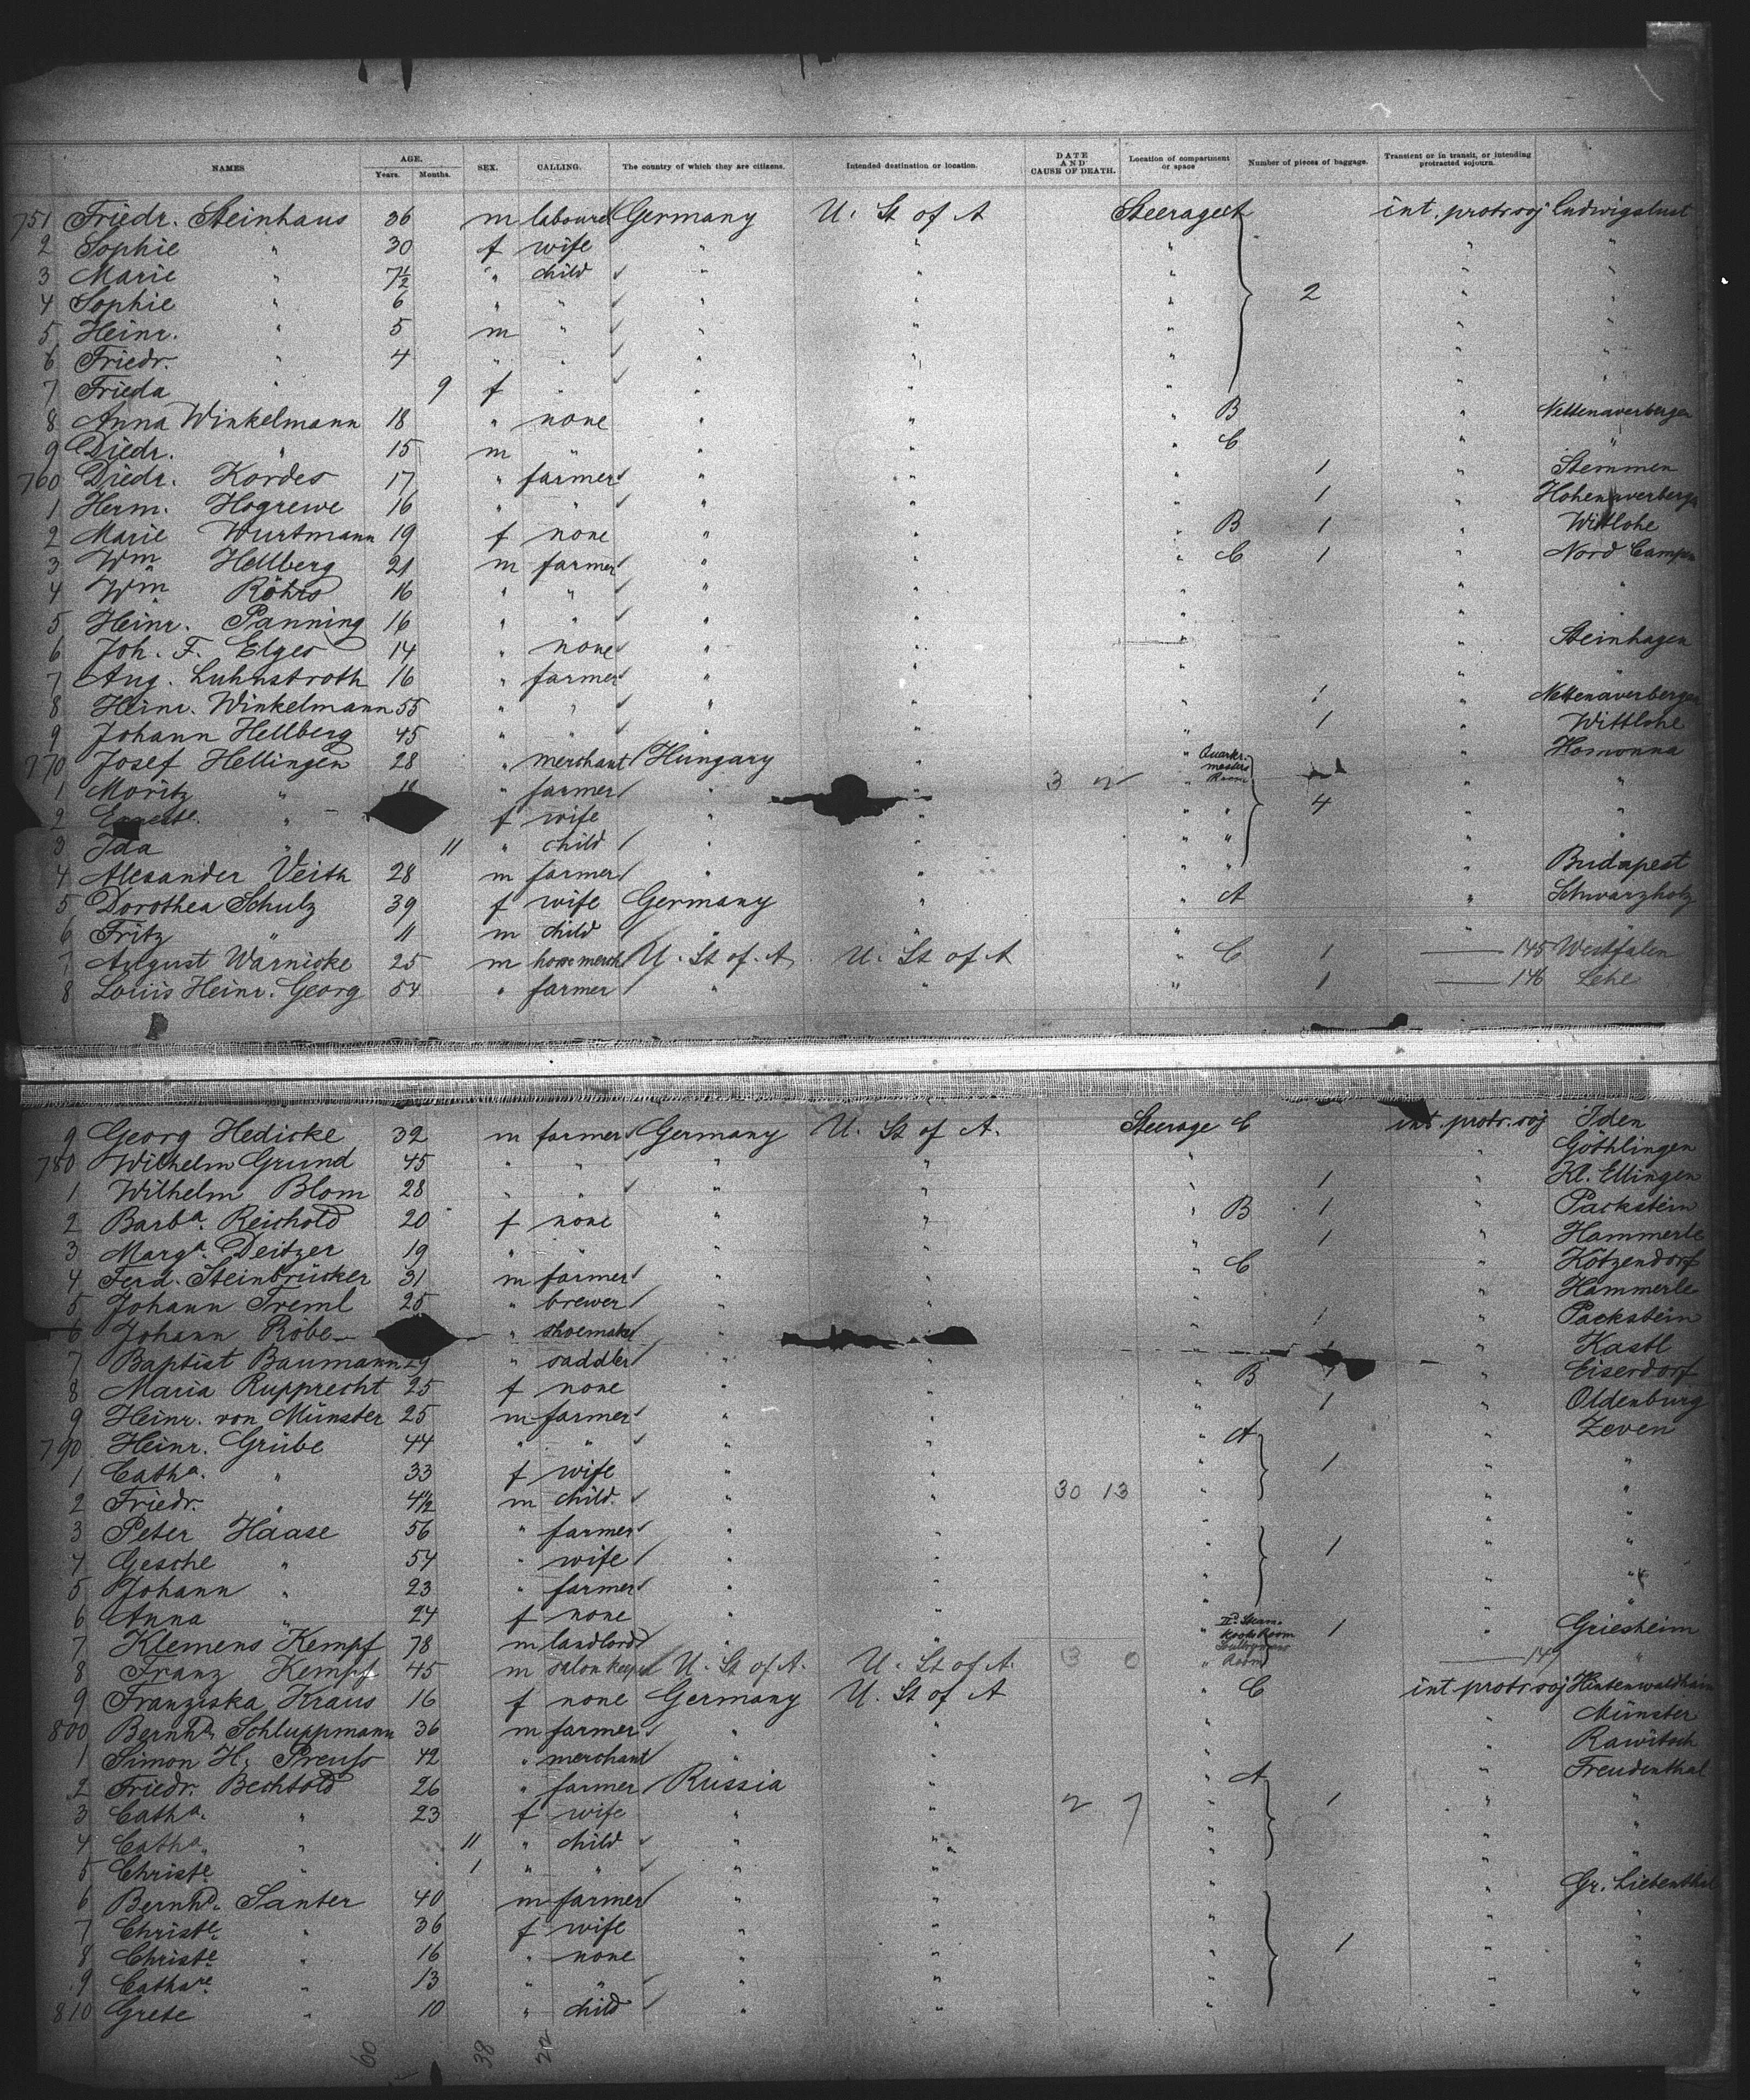 NAMES AGE. Years. Months. SEX. CALLING. The country of which they are citizens. Intended destination or location. DATE AND CAUSE OF DEATH. Location of compartment or space Number of pieces of baggage. Transient or in transit, or intending protracted sojourn.
751 Friedr. Steinhaus 36 m labourer Germany U. St of A Steerage A int. protr. soj Ludwigslust
2 Sophie " 30 f wife " " " " "
3 Marie " 7½ " child " " " " "
4 Sophie " 6 " " " " " 2 " "
5 Heinr. " 5 m " " " " " "
6 Friedr. " 4 " " " " " " "
7 Frieda " 9 f " " " " " "
8 Anna Winkelmann 18 " none " " " B " Nettenaverbergen
9 Diedr. " 15 m " " " " C " "
760 Diedr. Kordes 17 " farmer " " " 1 " Stemmen
1 Herm. Hogrewe 16 " " " " " 1 " Hohenaverberge
2 Marie Wurtmann 19 f none " " " B 1 " Wittlohe
3 Wm Hellberg 21 m farmer " " " C 1 " Nord Campe
4 Wm Röhrs 16 " " " " " " "
5 Heinr. Panning 16 " " " " " "
6 Joh. F. Elges 14 " none " " " " Steinhagen
7 Aug. Luhnstroth 16 " farmer " " " " "
8 Heinr. Winkelmann 55 " " " " " 1 " Nettenaverbergen
9 Johann Hellberg 45 " " " " " 1 " Wittlohe
770 Josef Hellingen 28 " merchant Hungary " " Quartermasters Room " Homonna
1 Moritz " 18 " farmer " 3 2 " " "
2 " f wife " " " " 4 " "
3 Ida " 11 " child " " " " " "
4 Alexander Veith 28 m farmer " " " " " Budapest
5 Dorothea Schulz 39 f wife Germany " " A " Schwarzholz
6 Fritz " 11 m child " " " " "
7 August Warnicke 25 m U. St of A. U. St of A " C 1 145 Westfalen
8 Louis Heinr. Georg 54 " farmer " " " 1 146 Lehe
9 Georg Hedicke 32 m farmer Germany U. St of A. Steerage C int. protr. soj Iden
780 Wilhelm Grund 45 " " " " " " Göthlingen
1 Wilhelm Blom 28 " " " " " 1 " Kl. Ellingen
2 Barba. Reichold 20 f none " " " B 1 " Parkstein
3 Marga. Deitzer 19 " " " " " 1 " Hammerle
4 Ferd. Steinbrücker 31 m farmer " " " C " Kötzendorf
5 Johann Treml 25 " brewer " " " Hammerle
6 Johann Röbe " shoemaker " " 1 " Parkstein
7 Baptist Baumann 29 " saddler " " " 1 " Kastl
8 Maria Rupprecht 25 f none " " " B 1 " Eiserdorf
9 Heinr. von Münster 25 m farmer " " " 1 " Oldenburg
790 Heinr. Grübe 44 " " " " " A Zeven
1 Catha. " 33 f wife " " " 1 " "
2 Friedr. " 4½ m child. " " 30 13 " " "
3 Peter Haase 56 " farmer " " " " "
4 Gesche " 54 " wife " " " 1 " "
5 Johann " 23 " farmer " " " " "
6 Anna " 24 f none " " " " "
7 Klemens Kempf 78 m landlord " " " 1 " Griesheim
8 Franz Kempf 45 m salon keeper U. St of A. U. St of A. 3 0 " Room 149 "
9 Franziska Kraus 16 f none Germany U. St of A " C int protr soj
800 Bernhd. Schluppmann 36 m farmer " " " " Münster
1 Simon H. Preuss 42 " merchant " " " " Rawitsch
2 Friedr. Bechtold 26 " farmer Russia " " A " Freudenthal
3 Catha. " 23 f wife " " 2 7 " 1 " "
4 Catha. " 11 " child " " " " "
5 Christe " 1 " " " " " " "
6 Bernhd. Santer 40 m farmer " " " " Gr. Liebenthal
7 Christe. " 36 f wife " " " " "
8 Christe " 16 " none " " " 1 " "
9 Cathare. " 13 " " " " " " "
810 Grete " 10 " child " " " " "
60 38 22